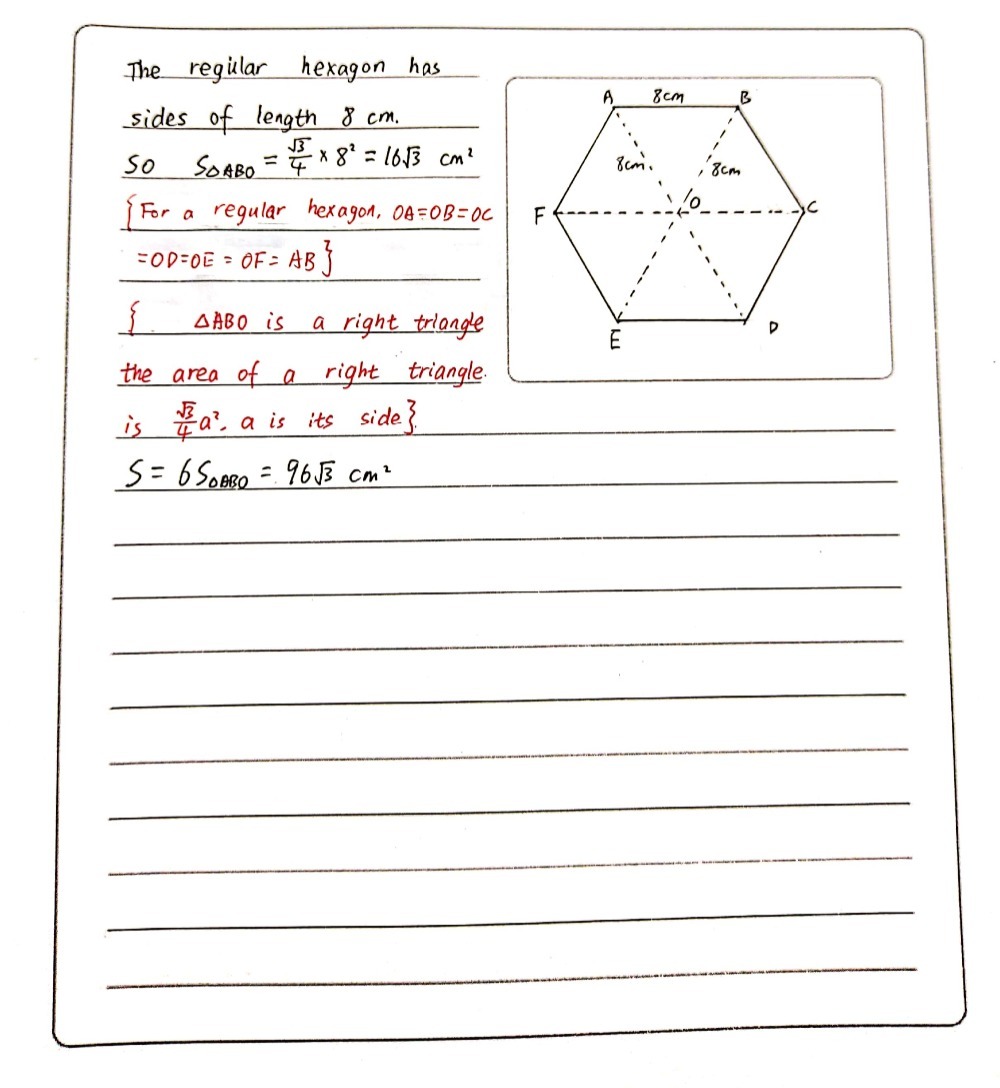 The regular hexagon has
sides of length 8 cm.
so S△ABO = √3/4 × 8² = 16√3 cm²
{For a regular hexagon, OA=OB=OC
=OD=OE=OF=AB}
{ △ABO is a right triangle
the area of a right triangle.
is √3/4 a², a is its side}
S = 6S△ABO = 96√3 cm²
A 8cm B
8cm. 8cm
F O C
E D